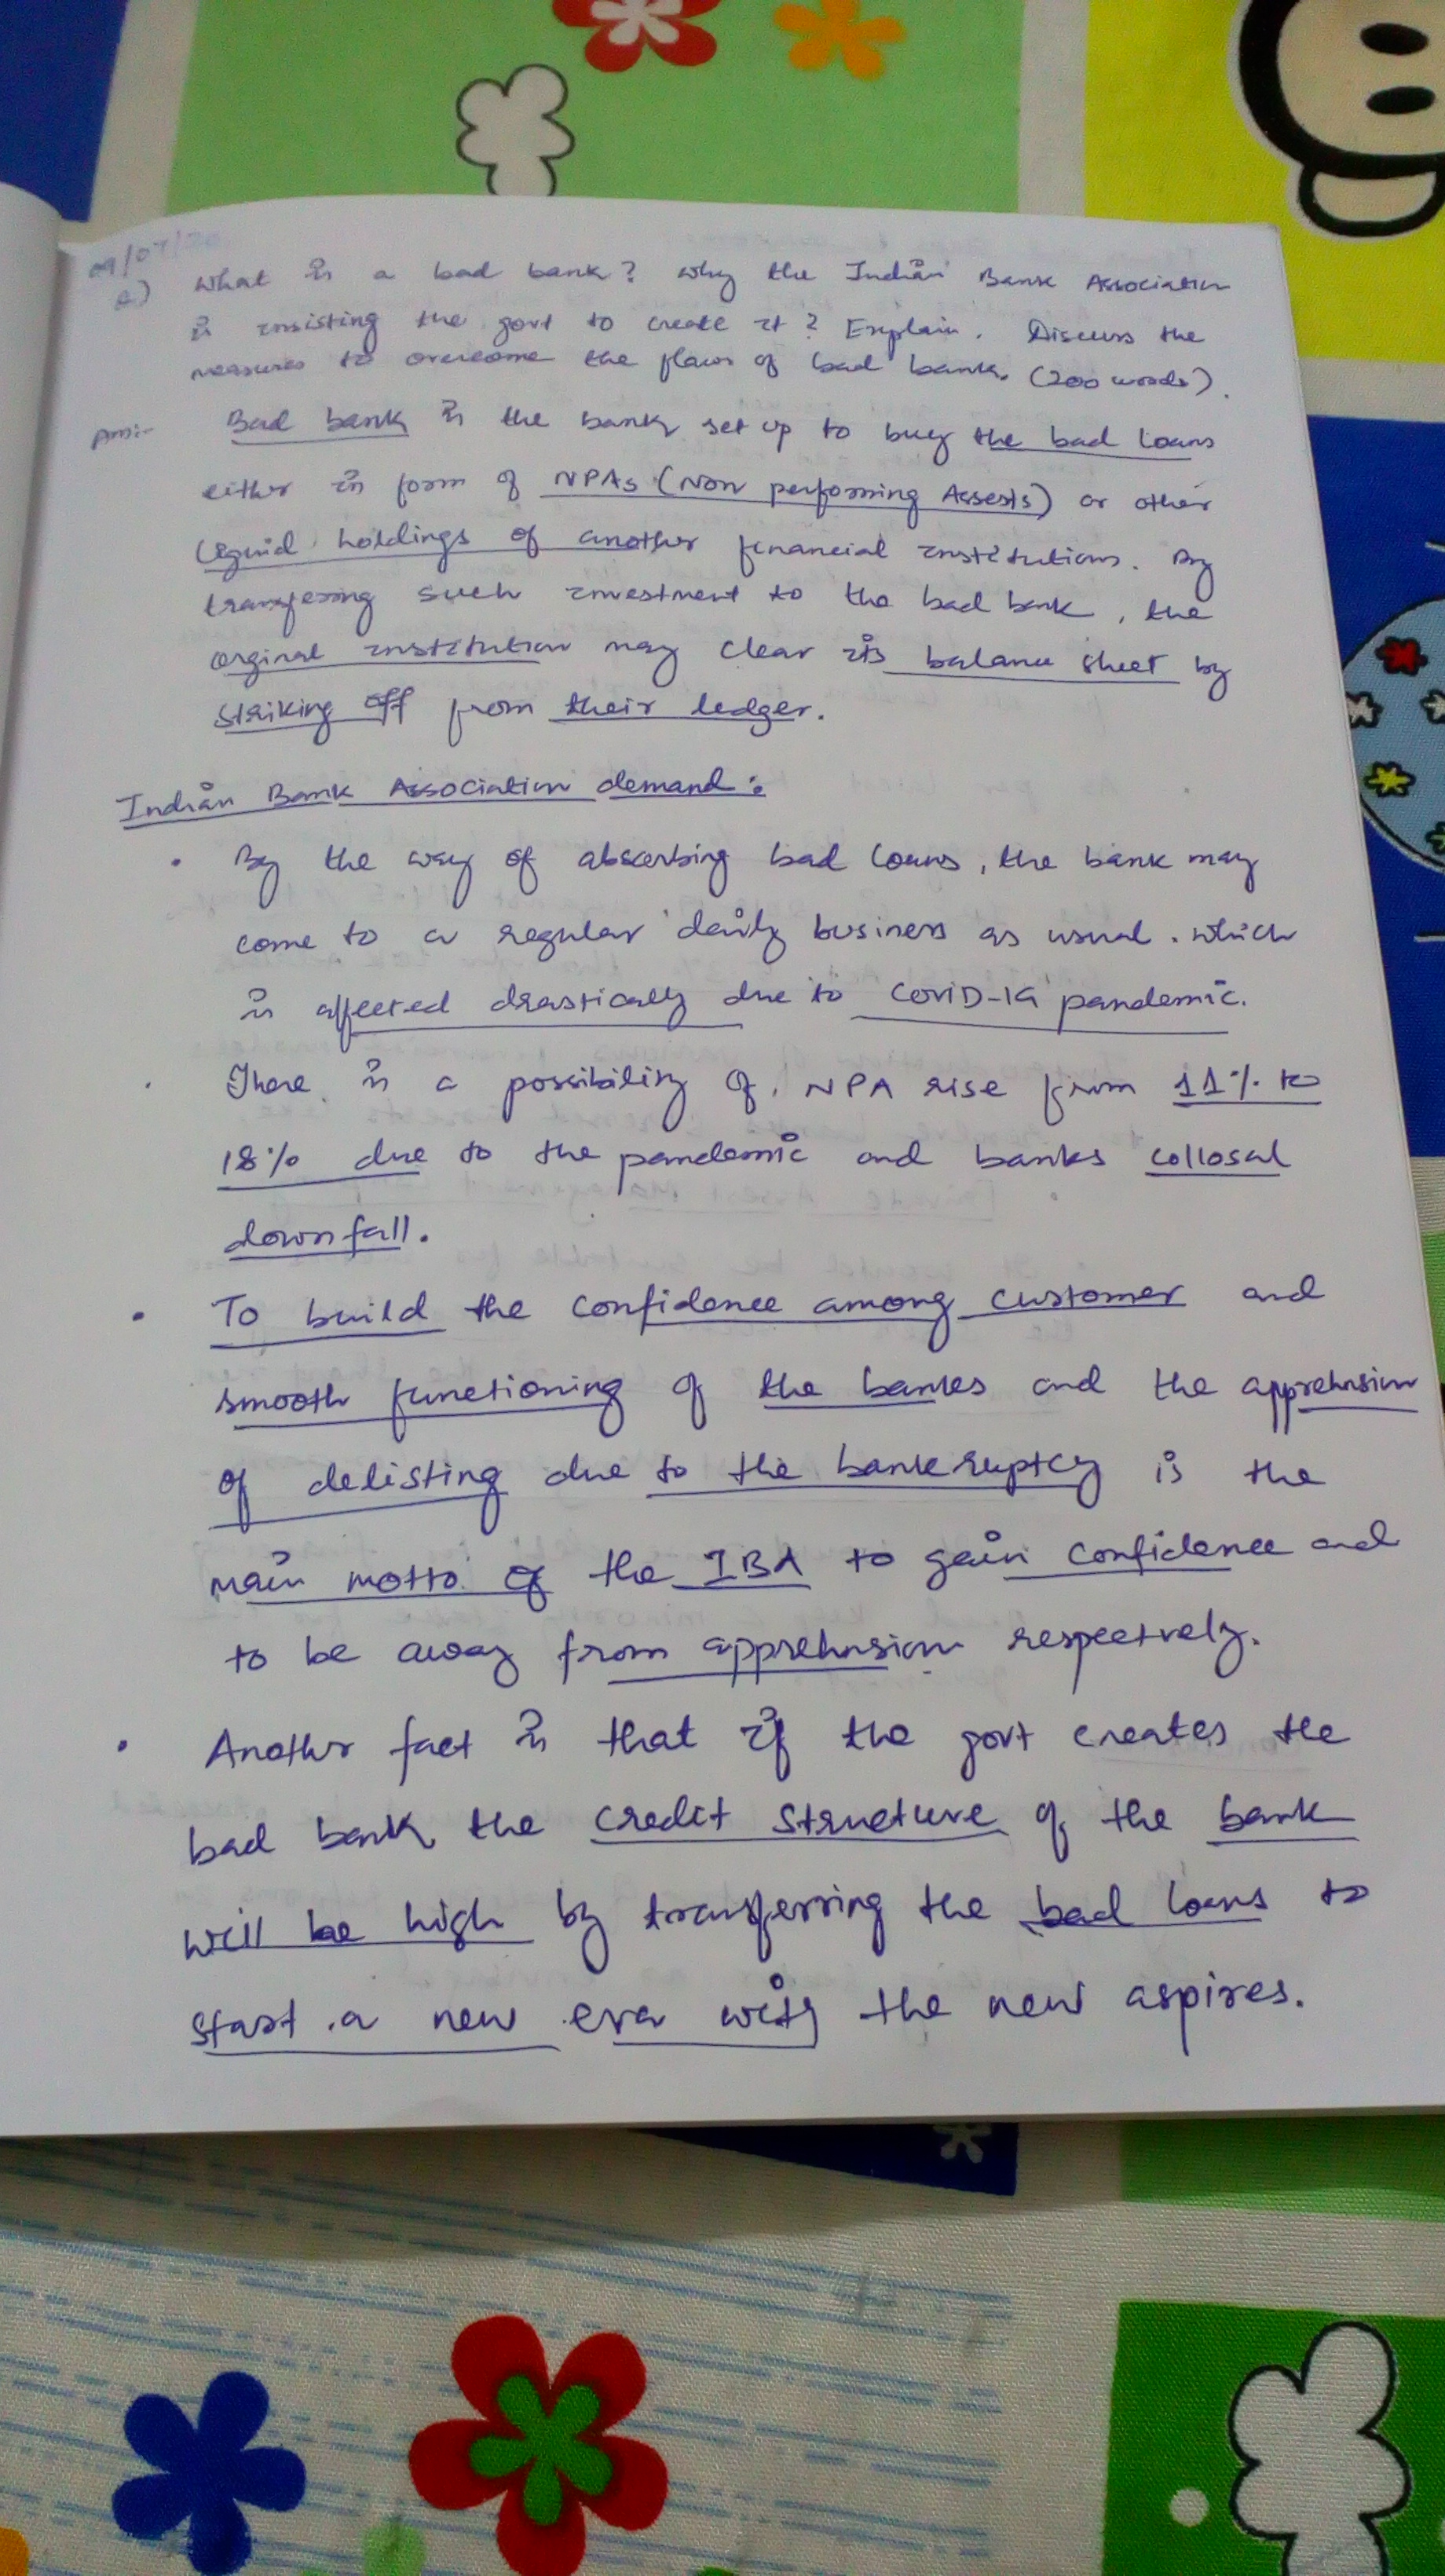 09/07/20
Q) What is a bad bank? Why the Indian Bank Association
is insisting the govt to create it? Explain. Discuss the
measures to overcome the flaws of bad banks. (200 words).
Ans:- Bad bank is the bank set up to buy the bad loans
either in form of NPAs (Non performing Assests) or other
liquid holdings of another financial institutions. By
transfering such investment to the bad bank, the
orginal institution may clear its balance sheet by
striking off from their ledger.
Indian Bank Association demand:
• By the way of absorbing bad loans, the bank may
come to a regular daily business as usual. which
is affected drastically due to COVID-19 pandemic.
• There is a possibility of NPA rise from 11% to
18% due to the pandemic and banks collosal
downfall.
• To build the confidence among customer and
smooth functioning of the banks and the apprehension
of delisting due to the bankruptcy is the
main motto of the IBA to gain confidence and
to be away from apprehension respectvely.
• Another fact is that if the govt creates the
bad bank the credit structure of the bank
will be high by transferring the bad loans to
start a new era with the new aspires.